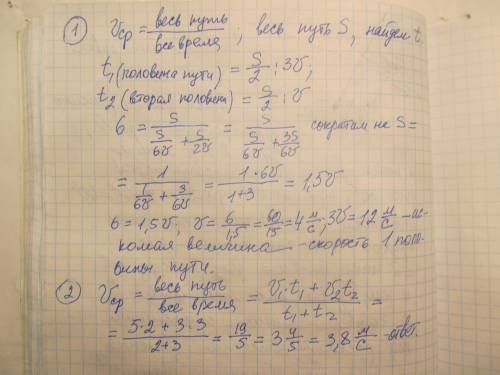 ① Vср = весь путь / все время ; весь путь S, найдем t.
t₁ (половина пути) = S/2 : 3V;
t₂ (вторая половина) = S/2 : V
6 = S / (S/6V + S/2V) = S / (S/6V + 3S/6V) сократим на S =
= 1 / (1/6V + 3/6V) = 1·6V / 1+3 = 1,5V
6 = 1,5V, V = 6/1,5 = 60/15 = 4 м/с; 3V = 12 м/с – ис-
комая величина – скорость 1 поло-
вины пути.
② Vср = весь путь / все время = V₁·t₁ + V₂t₂ / t₁ + t₂ =
= 5·2 + 3·3 / 2+3 = 19/5 = 3 4/5 = 3,8 м/с – ответ.